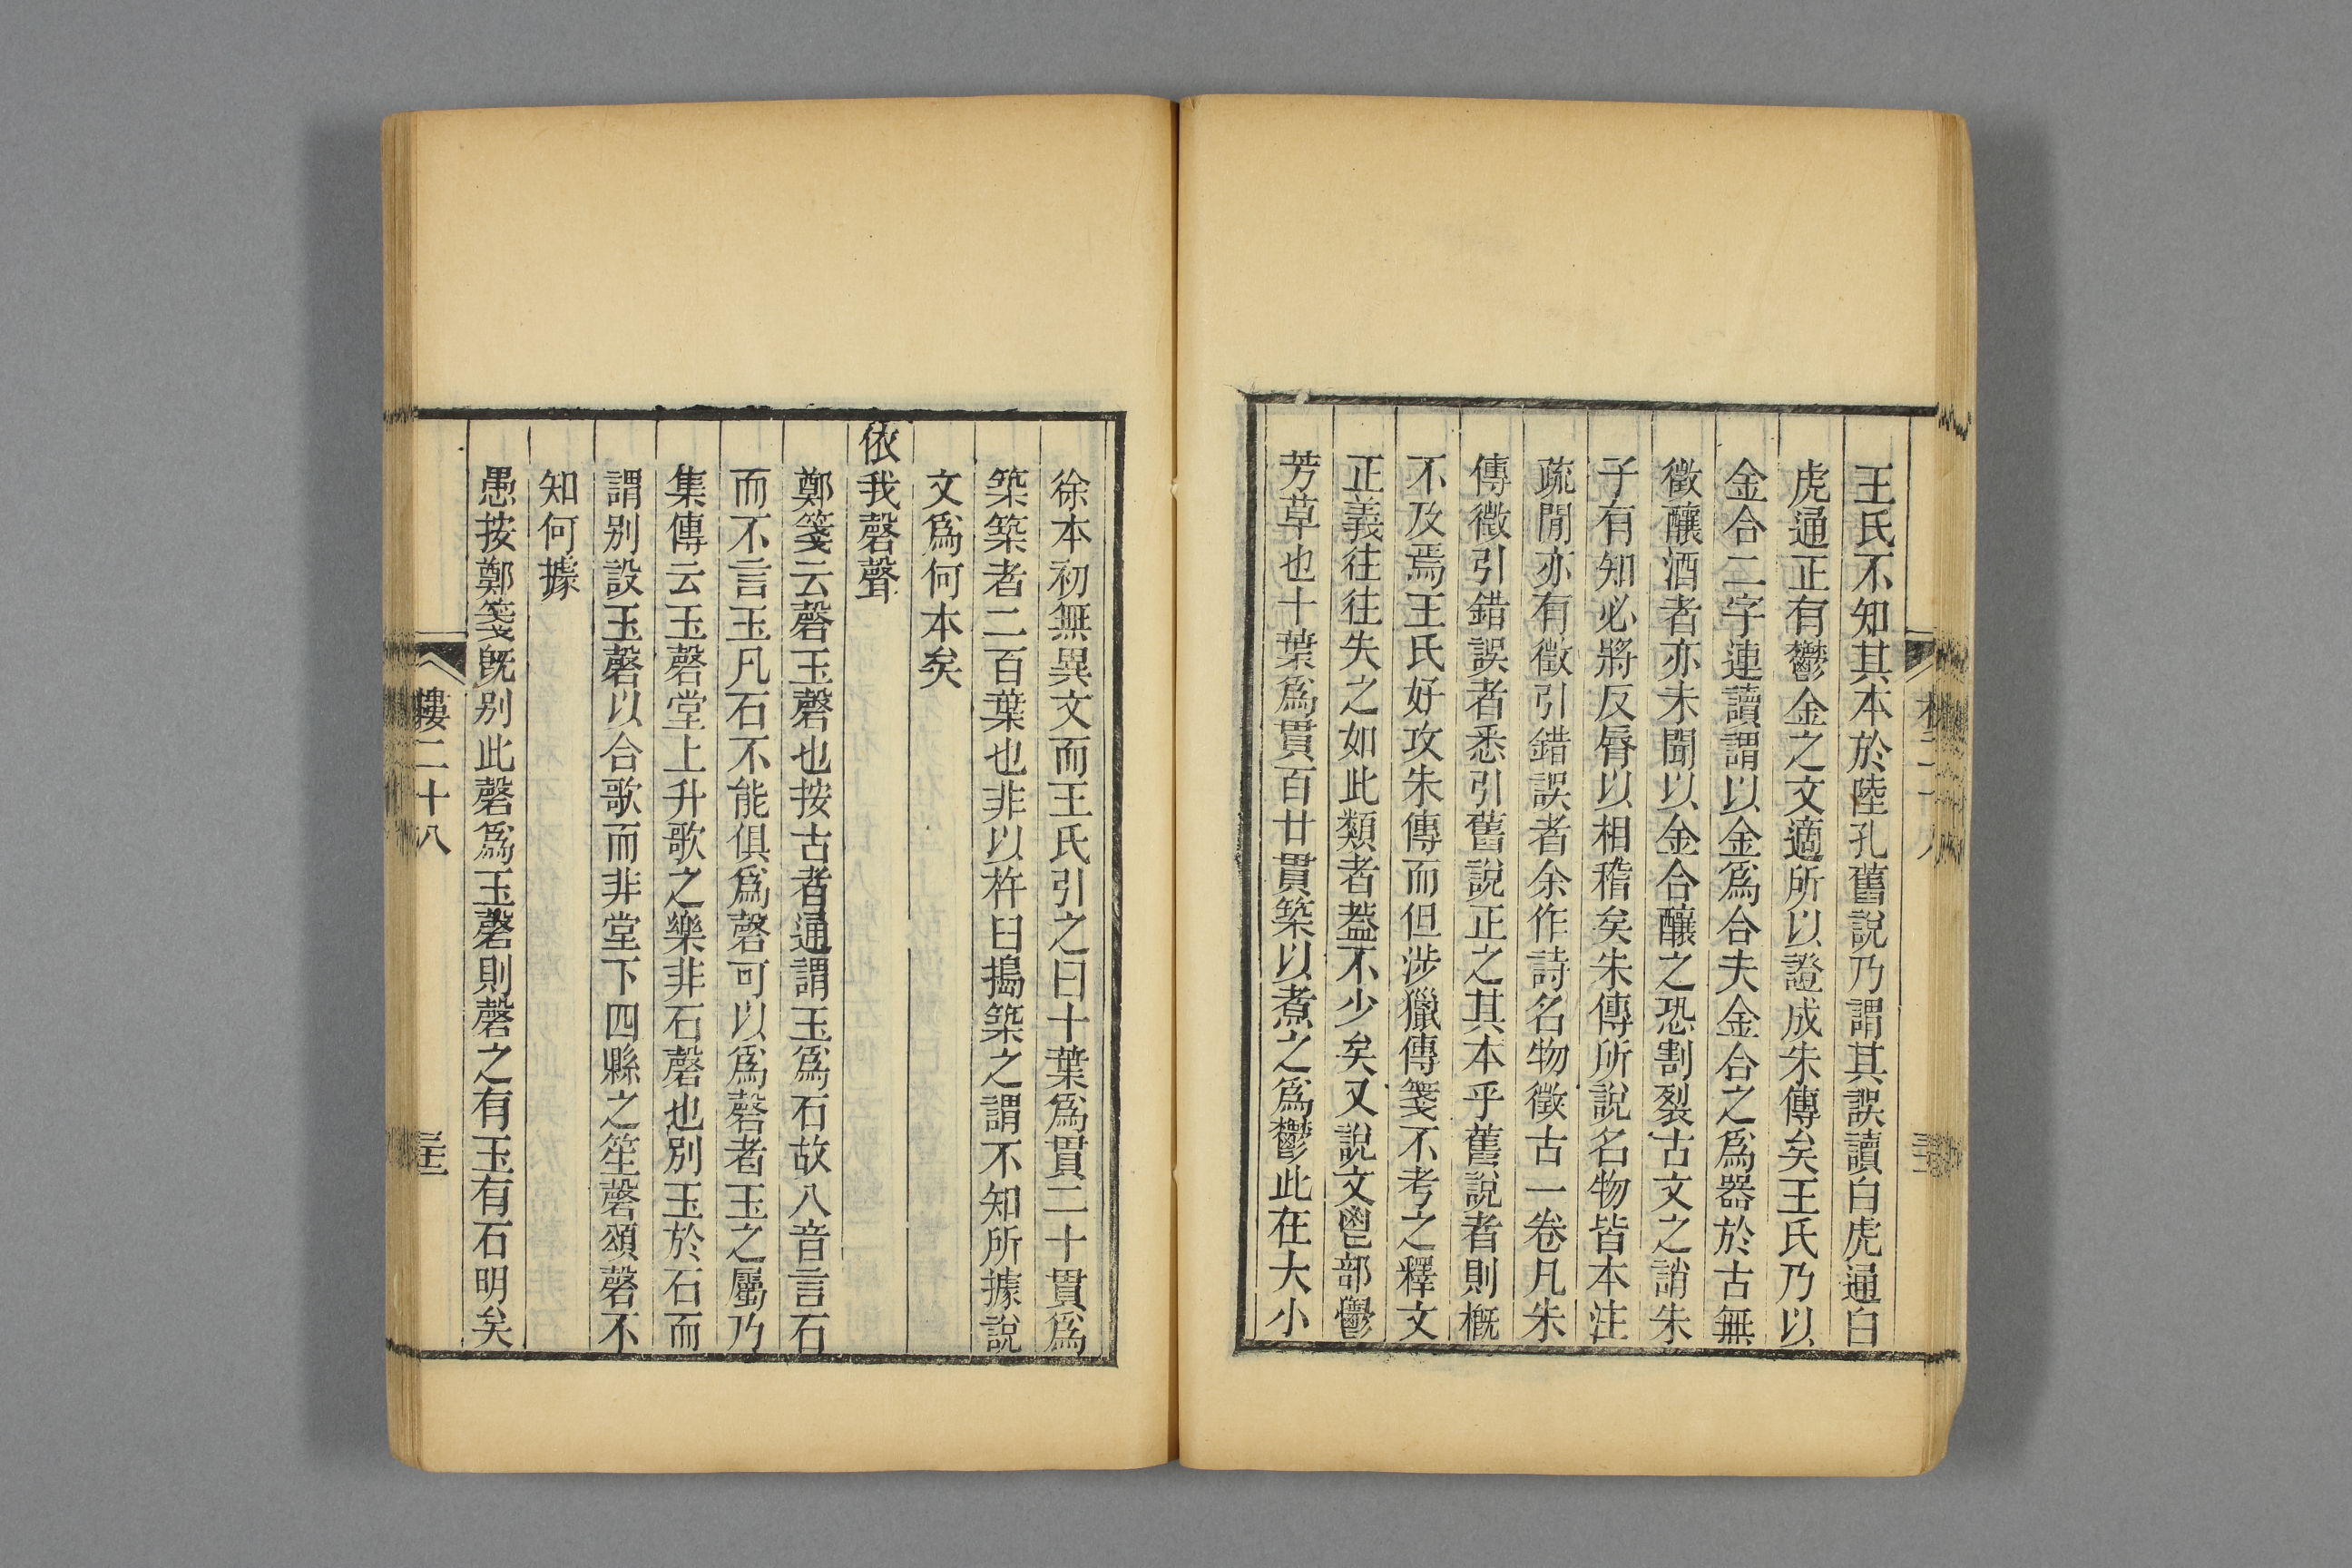 王氏不知其本於陸孔舊說乃謂其誤讀白虎通白
虎通正有鬱金之文適所以證成朱傳矣王氏乃以
金合二字連讀謂以金爲合夫金合之爲器於古無
徵釀酒者亦未聞以金合釀之恐割裂古文之誚朱
子有知必將反脣以相稽矣朱傳所說名物皆本注
疏閒亦有徵引錯誤者余作詩名物徵古一卷凡朱
傳徵引錯誤者悉引舊說正之其本乎舊說者則概
不及焉王氏好攻朱傳而但涉獵傳箋不考之釋文
正義往往失之如此類者葢不少矣又說文鬯部鬱
芳草也十葉爲貫百廿貫築以煮之爲鬱此在大小
徐本初無異文而王氏引之曰十葉爲貫二十貫爲
築築者二百葉也非以杵臼搗築之謂不知所據說
文爲何本矣
依我磬聲
鄭箋云磬玉磬也按古者通謂玉爲石故八音言石
而不言玉凡石不能俱爲磬可以爲磬者玉之屬乃
集傳云玉磬堂上升歌之樂非石磬也別玉於石而
謂別設玉磬以合歌而非堂下四縣之笙磬頌磬不
知何據
愚按鄭箋旣别此磬爲玉磬則磬之有玉有石明矣
二十八